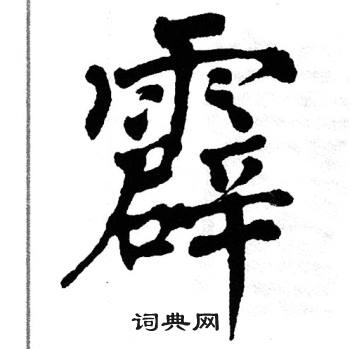 霹
词典网